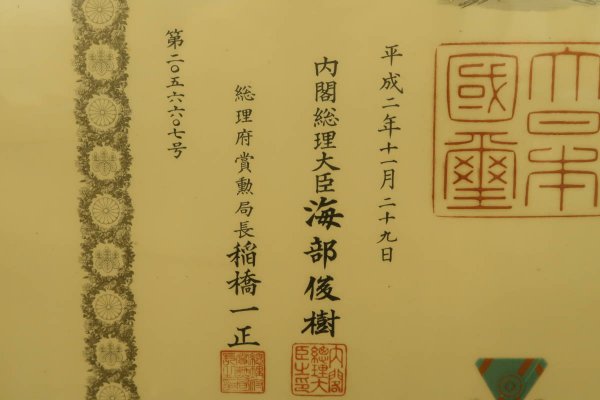 大日本
國璽
平成二年十一月二十九日
内閣総理大臣海部俊樹
内閣
総理大
臣之印
総理府賞勲局長稲橋一正
第二〇五六六〇七号